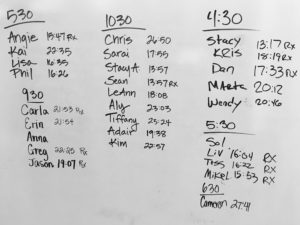 530
Angie 15:47 Rx
Kai 22:35
Lisa 16:35
Phil 16:26
930
Carla 21:53 Rx
Erin 21:54
Anna
Greg 22:25 Rx
Jason 19:07 Rx
1030
Chris 26:50
Sarai 17:55
Stacy A 13:57
Sean 13:57 Rx
LeAnn 18:08
Aly 23:03
Tiffany 25:24
Adair 19:38
Kim 22:57
4:30
Stacy 13:17 Rx
Kris 18:19 Rx
Dan 17:33 Rx
Marta 20:12
Wendy 20:46
5:30
Sol
Liv 16:04 RX
Tess 16:22 RX
Mikel 15:53 RX
630
Cameron 27:41